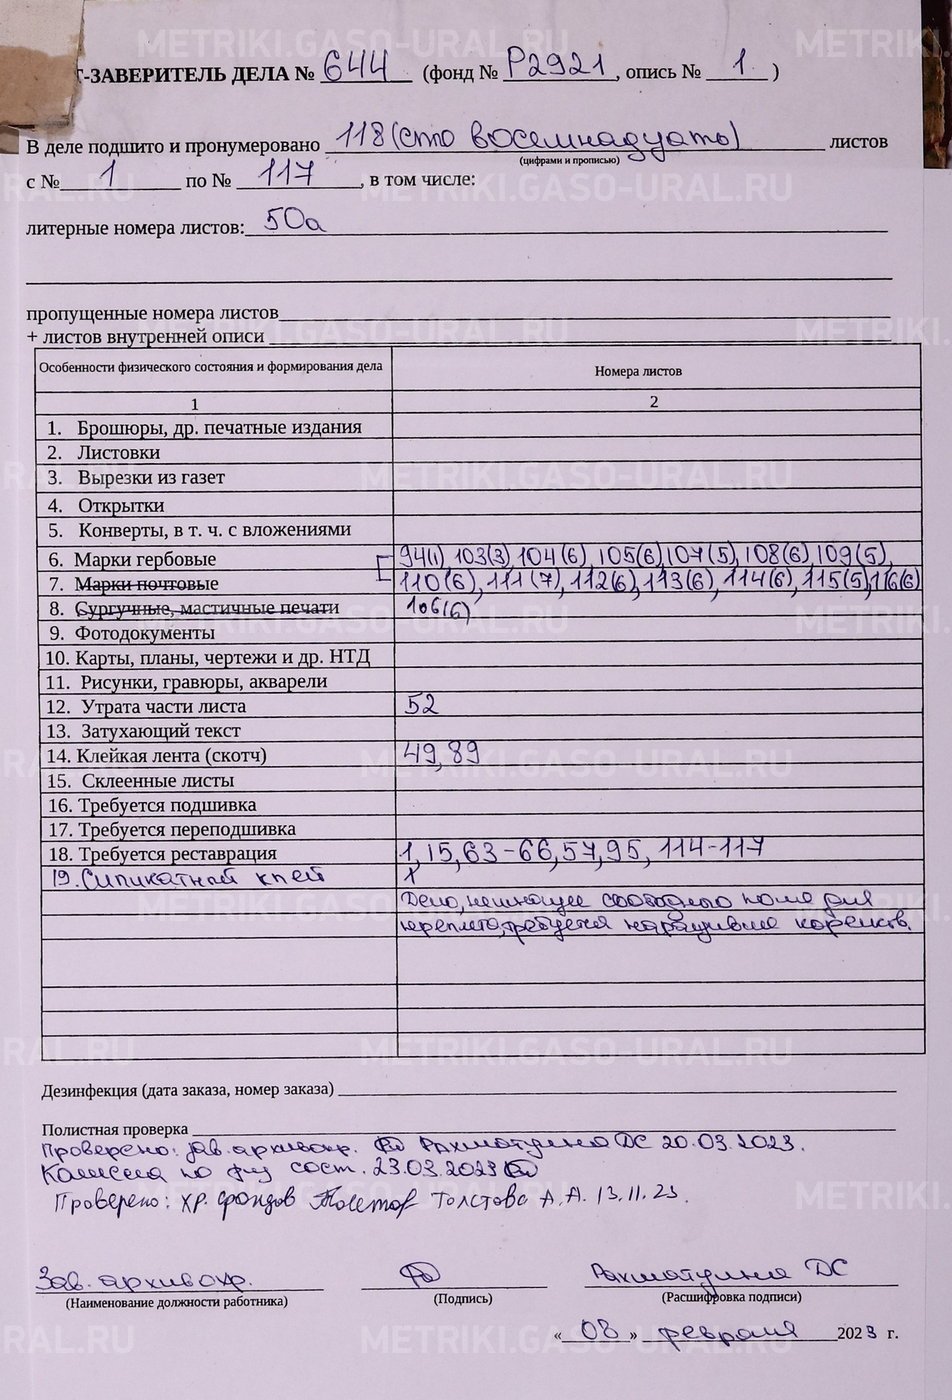 Т-ЗАВЕРИТЕЛЬ ДЕЛА № 644 (фонд № Р2921, опись № 1 )
В деле подшито и пронумеровано 118 (сто восемнадцать) листов
(цифрами и прописью)
с № 1 по № 117, в том числе:
литерные номера листов: 50а
пропущенные номера листов
+ листов внутренней описи
Особенности физического состояния и формирования дела Номера листов
1 2
1. Брошюры, др. печатные издания
2. Листовки
3. Вырезки из газет
4. Открытки
5. Конверты, в т. ч. с вложениями
6. Марки гербовые 94(1), 103(3), 104(6), 105(6), 107(5), 108(6), 109(5),
7. Марки почтовые 110(6), 111(7), 112(6), 113(6), 114(6), 115(5), 116(6)
8. Сургучные, мастичные печати 106(6)
9. Фотодокументы
10. Карты, планы, чертежи и др. НТД
11. Рисунки, гравюры, акварели
12. Утрата части листа 52
13. Затухающий текст
14. Клейкая лента (скотч) 49, 89
15. Склеенные листы
16. Требуется подшивка
17. Требуется переподшивка
18. Требуется реставрация 1, 15, 63-66, 57, 95, 114-117
19. Силикатной клей 1
Дело, не имеющее свободного поля для
переплета, требуется наращивание корешков.
Дезинфекция (дата заказа, номер заказа)
Полистная проверка
Проверено: зав. архивохр. Рахматулина ДС 20.03.2023.
Комиссия по физ сост. 23.03.2023
Проверено: хр. фондов Толстова А.А. 13.11.23.
Зав. архивохр. Рахматулина ДС
(Наименование должности работника) (Подпись) (Расшифровка подписи)
« 08 » февраля 2023 г.
METRIKI.GASO-URAL.RU